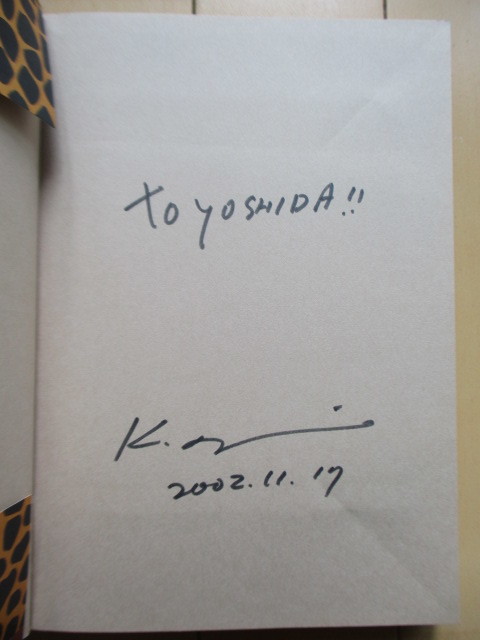 to YOSHIDA!!
K.
2002.11.17